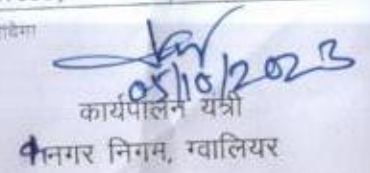 05/10/2023
कार्यपालन यंत्री
नगर निगम, ग्वालियर